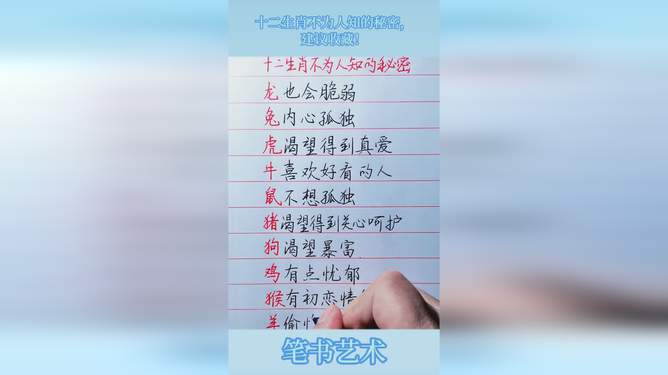 十二生肖不为人知的秘密,
建议收藏!
十二生肖不为人知的秘密
龙也会脆弱
兔内心孤独
虎渴望得到真爱
牛喜欢好看的人
鼠不想孤独
猪渴望得到关心呵护
狗渴望暴富
鸡有点忧郁
猴有初恋情
羊偷
笔书艺术